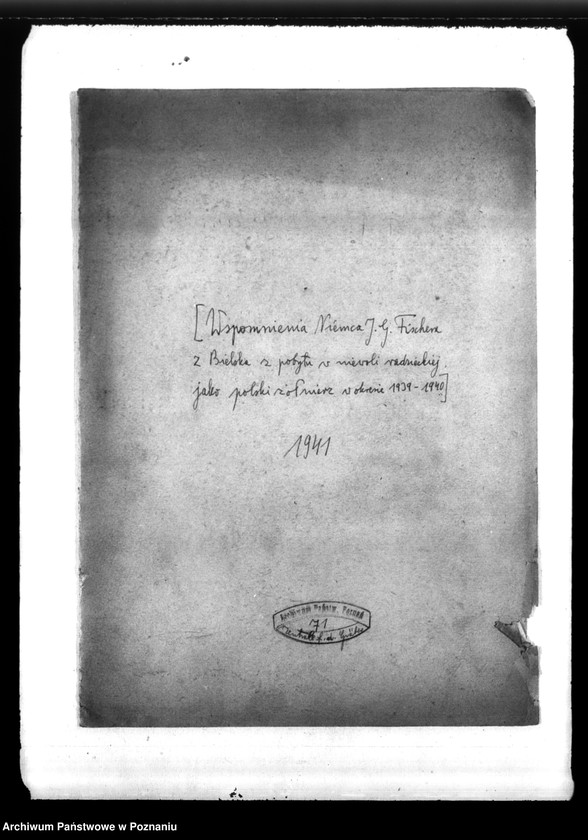 [Wspomnienia Niemca J. G. Fischera
z Bielska z pobytu w niewoli radzieckiej
jako polski żołnierz w okresie 1939-1940]
1941
Archiwum Państw. Poznań
71
Archiwum Państwowe w Poznaniu